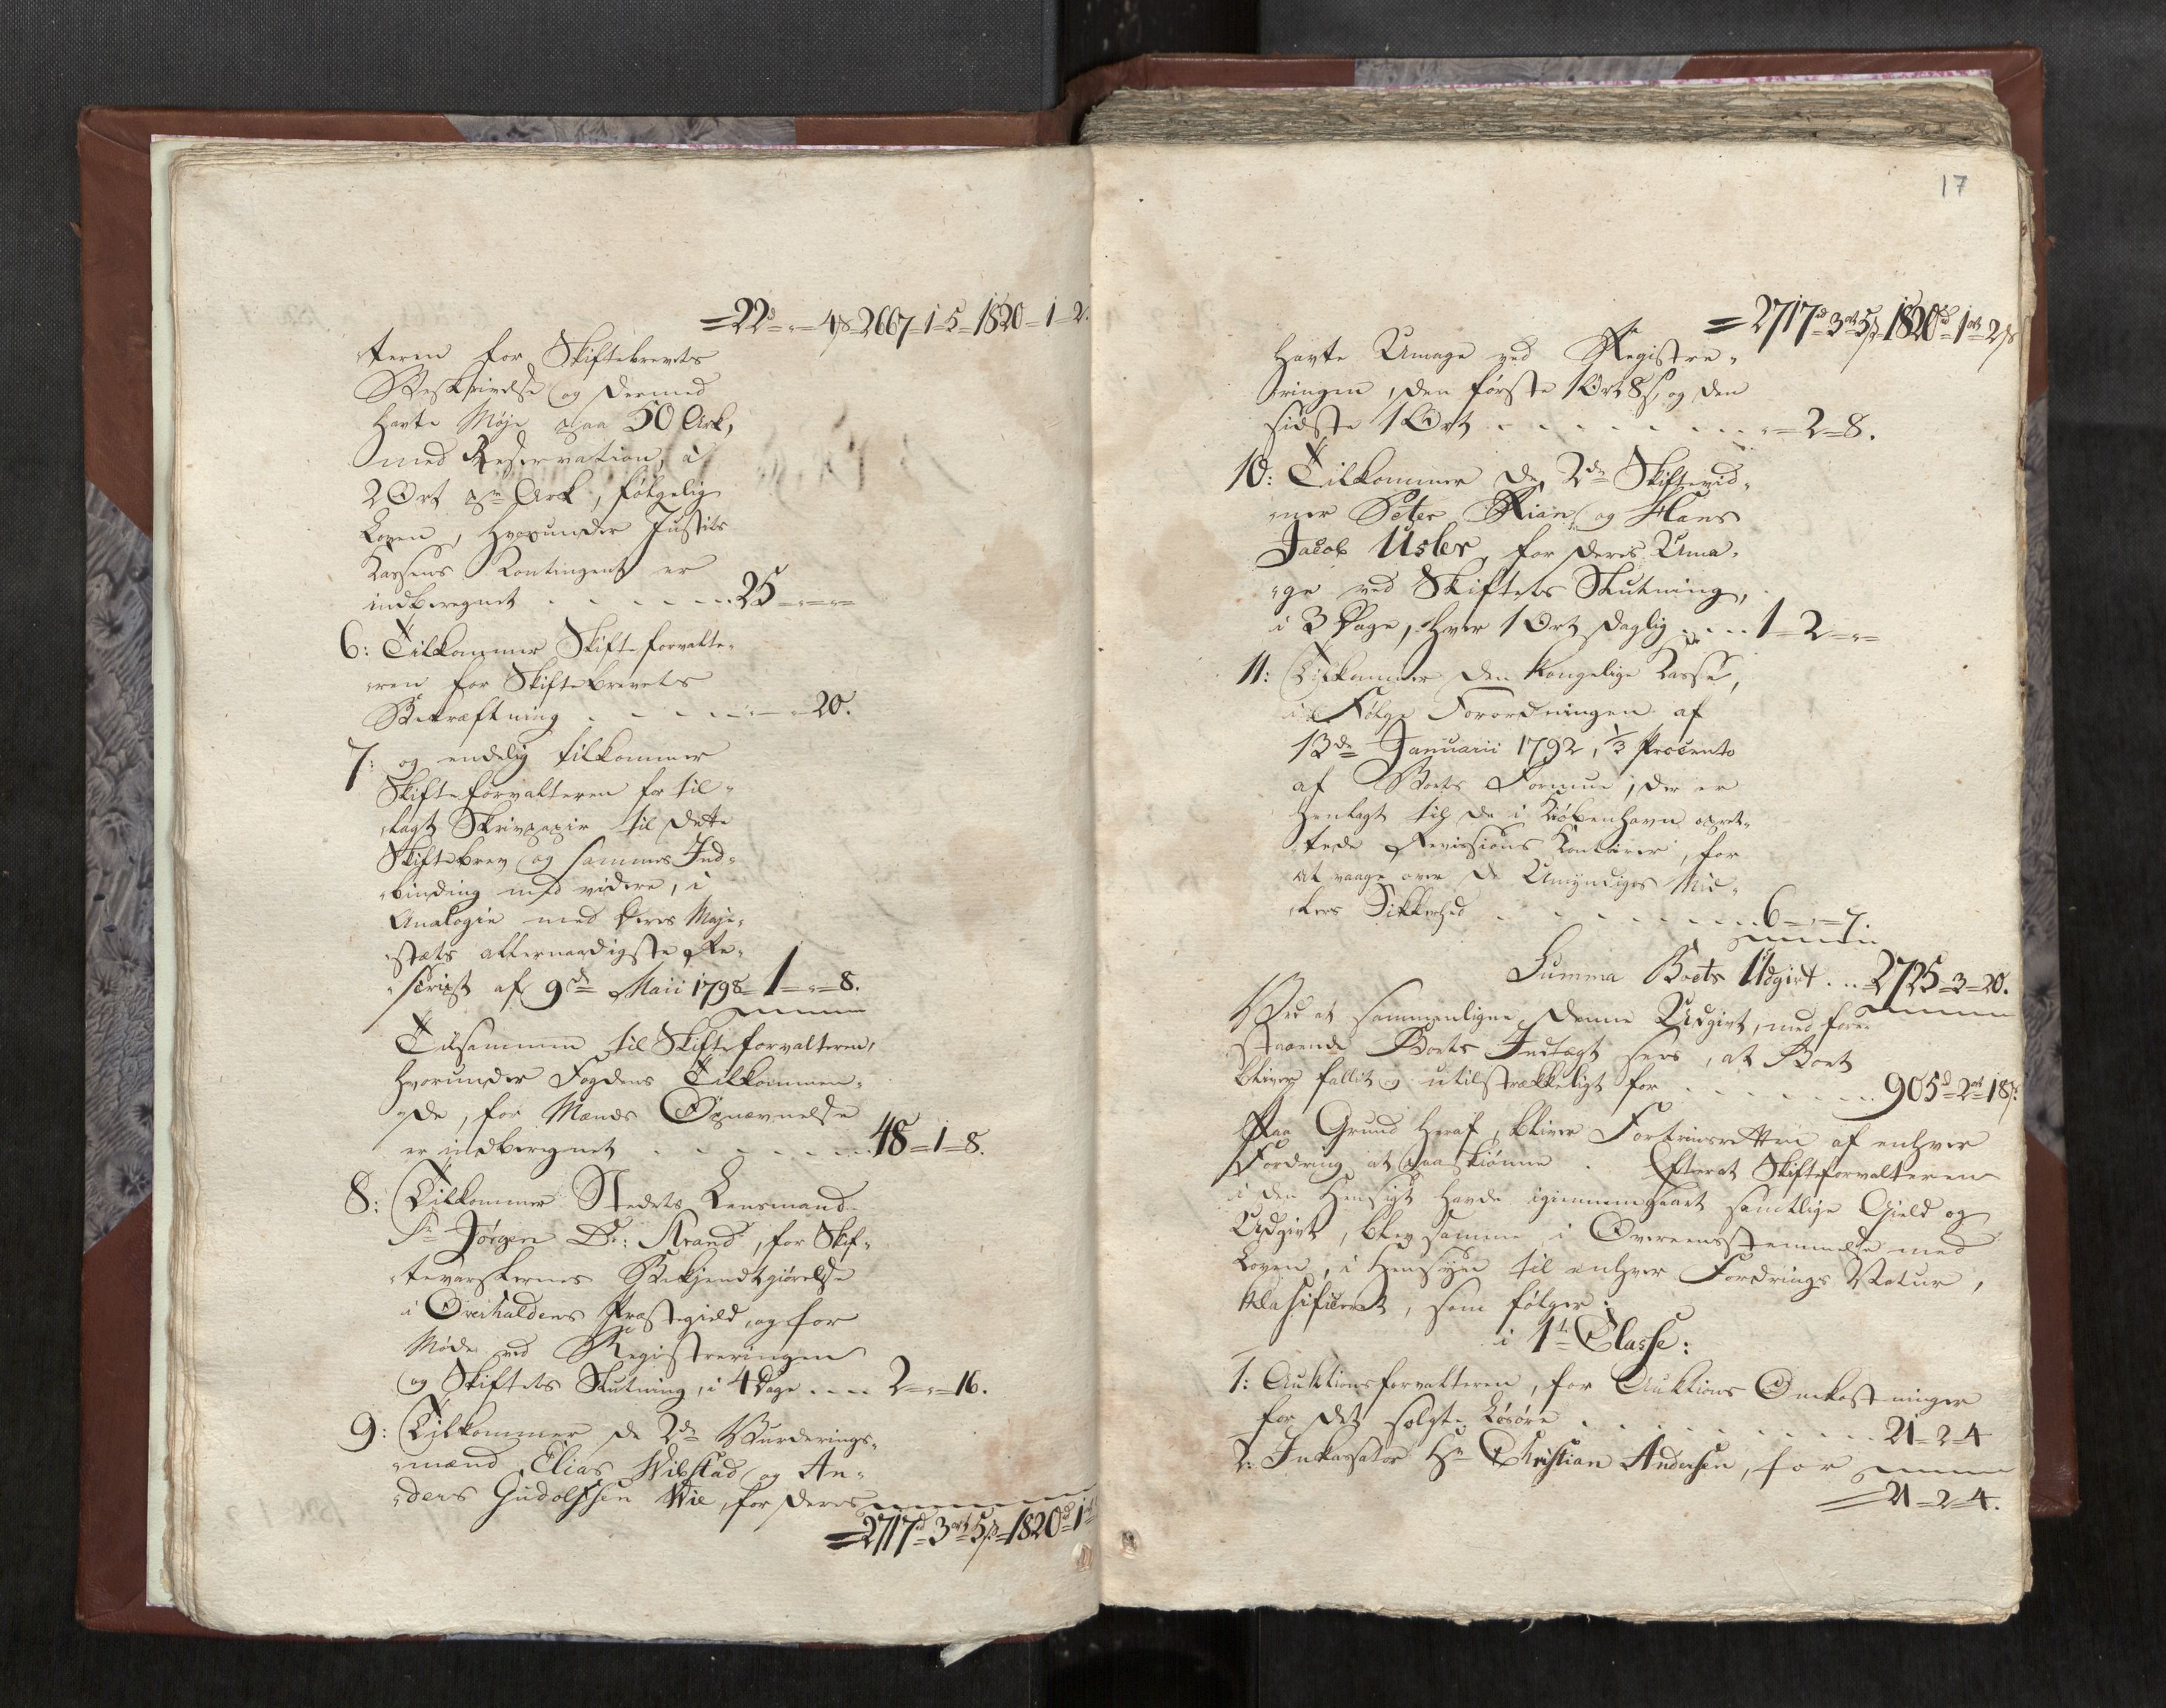 =22d - " - 4ß - 2667 - 1 - 5 - 1820 - 1 - 2.
teren for Skiftebrevets
Beskrivelse og dermed
havte Møje paa 50 Ark,
med Reservation, à
2 Ort pr Ark, følgelig
Loven, hvorunder Justits
Kassens Kontingent er
indberegnet . . . . . . . 25 - " - "
6: Tilkommer Skifteforvalte-
ren for Skiftebrevets
Bekræftning . . . . . - " - 20.
7: og endelig tilkommer
Skifteforvalteren for til-
lagt Skrivpapir til dette
Skiftebrev og sammes Ind-
binding med videre, i
Analogie med Deres Maje-
stæts allernaadigste Re-
script af 9de Maii 1798 1 - " - 8.
Tilsammen til Skifteforvalteren,
hvorunder Fogdens Tilkommen-
de, for Mænds Opnævnelse
er indberegnet . . . . . . . 48 - 1 - 8.
8: Tilkommer Stedets Lensmand
Sr Jørgen Dr: Strand, for Skif-
tevarslernes Bekjendtgiørelse
i Overhaldens Præstegield, og for
Møde ved Registreringen
og Skiftets Slutning, i 4 Dage . . . . 2 - " - 16.
9: Tilkommer de 2de Vurderings-
mænd Elias Wibstad og An-
ders Gudolfsen Wie, for deres
= 2717d - 3ort 5ß - 1820d - 1
17
= 2717d - 3ort 5ß - 1820d - 1ort - 2ß
havte Umage ved Registre-
ringen, den første 1 Ort 8ß, og den
sidste 1 Ort . . . . . . . . " - 2 - 8.
10: Tilkommer de 2de Skiftevid-
ner Peter Rian og Hans
Jacob Usler, for deres Uma-
ge ved Skiftets Slutning,
i 3 Dage, hver 1 Ort daglig . . . . 1 - 2 - "
11: Tilkommer den kongelige Kasse,
i Følge Forordningen af
13de Januarii 1792, 1/3 Procento
af Boets Formue, der er
henlagt til de i Kiøbenhavn opret-
tede Revisions Kontoirer, for
at vaage over de Umyndiges Mid-
lers Sikkerhed . . . . . . . . 6 - " - 7.
Summa Boets Udgivt . . . 2725 - 3 - 20.
Ved at sammenligne denne Udgivt, med fore-
staaende Boets Indtægt sees, at Boet
bliver fallit og utilstrækkeligt for . . . . . . . 905d - 2ort 18ß.
Paa Grund heraf, bliver Fortrinsretten af enhver
Fordring at paaskiønne. Efterat Skifteforvalteren
i den Hensigt havde igiennemgaaet samtlige Gield og
Udgivt, blev samme i Overeensstemmelse med
Loven, i Hensyn til enhver Fordrings Natur,
klasificeret, som følger:
i 1te Classe:
1: Auktionsforvalteren, for Auktions Omkostninger
for det solgte Løsøre . . . . . . . . 21 - 2 - 4
2: Inkassator Hr Christian Andersen, for
= 21 - 2 - 4.